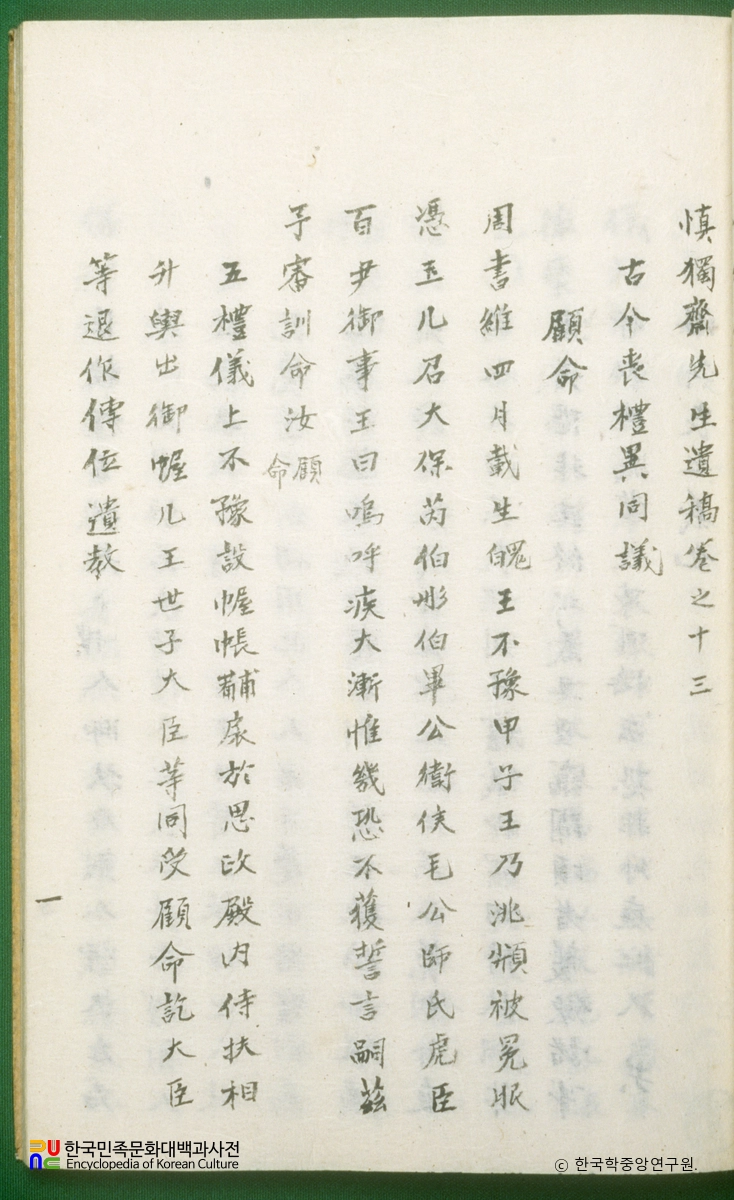 愼獨齋先生遺稿卷之十三
古今喪禮異同議
顧命
周書維四月哉生魄王不豫甲子王乃洮頮被冕服
憑玉几召大保芮伯彤伯畢公衛侯毛公師氏虎臣
百尹御事王曰嗚呼疾大漸惟幾恐不獲誓言嗣茲
予審訓命汝顧命
五禮儀上不豫設幄帳黼扆於思政殿內侍扶相
升輿出御幄几王世子大臣等同受顧命訖大臣
等退作傳位遺敎
一
한국민족문화대백과사전
Encyclopedia of Korean Culture
© 한국학중앙연구원